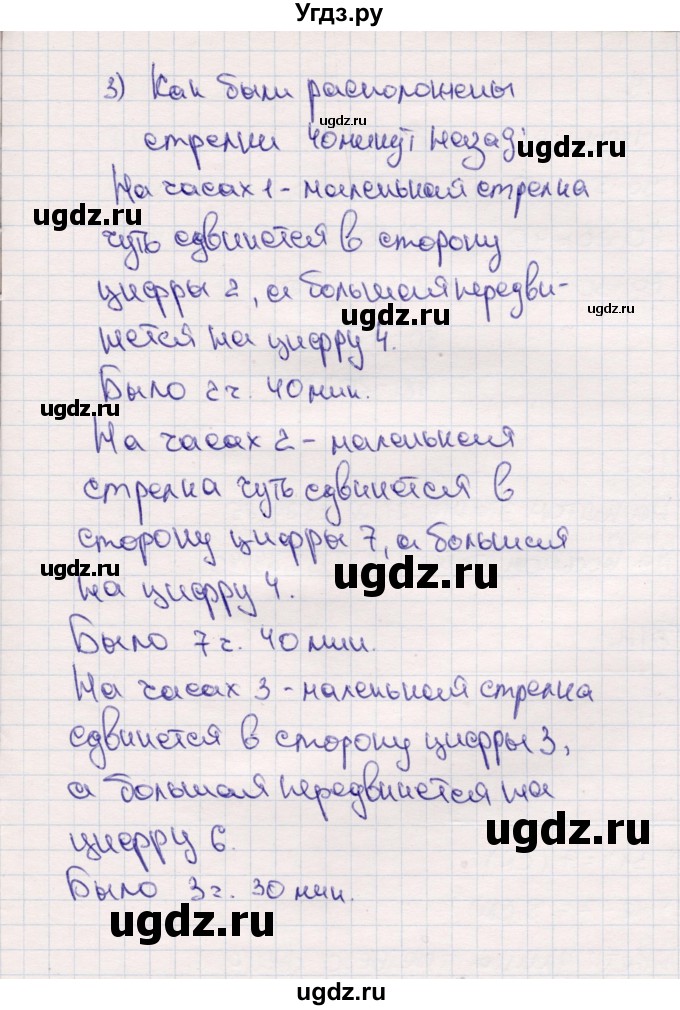 Угдз.ру
3) Как были расположены
ugdz.ru
стрелки 40 минут назад:
ugdz.ru
На часах 1 - маленькая стрелка
ugdz.ru
чуть сдвинется в сторону
цифры 2, а большая передви-
ugdz.ru
ugdz.ru
нется на цифру 4.
Было 2 ч. 40 мин.
ugdz.ru
На часах 2 - маленькая
стрелка чуть сдвинется в
сторону цифры 7, а большая
ugdz.ru
ugdz.ru
на цифру 4.
Было 7 ч. 40 мин.
На часах 3 - маленькая стрелка
сдвинется в сторону цифры 3,
а большая передвинется на
ugdz.ru
цифру 6.
Было 3 ч. 30 мин.
ugdz.ru
ugdz.ru